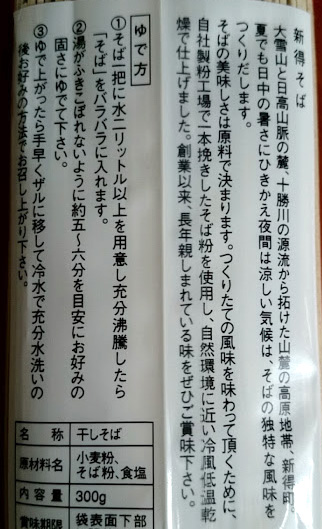 新得そば
大雪山と日高山脈の麓、十勝川の源流から拓けた山麓の高原地帯、新得町。
夏でも日中の暑さにひきかえ夜間は涼しい気候は、そばの独特な風味を
つくりだします。
そばの美味しさは原料で決まります。つくりたての風味を味わって頂くために、
自社製粉工場で一本挽きしたそば粉を使用し、自然環境に近い冷風低温乾
燥で仕上げました。創業以来、長年親しまれている味をぜひご賞味下さい。
ゆで方
①そば一把に水二リットル以上を用意し充分沸騰したら
「そば」をバラバラに入れます。
②湯がふきこぼれないように約五~六分を目安にお好みの
固さにゆでて下さい。
③ゆで上がったら手早くザルに移して冷水で充分水洗いの
後お好みの方法でお召し上がり下さい。
名称 干しそば
原材料名 小麦粉、
そば粉、食塩
内容量 300g
賞味期限 袋表面下部